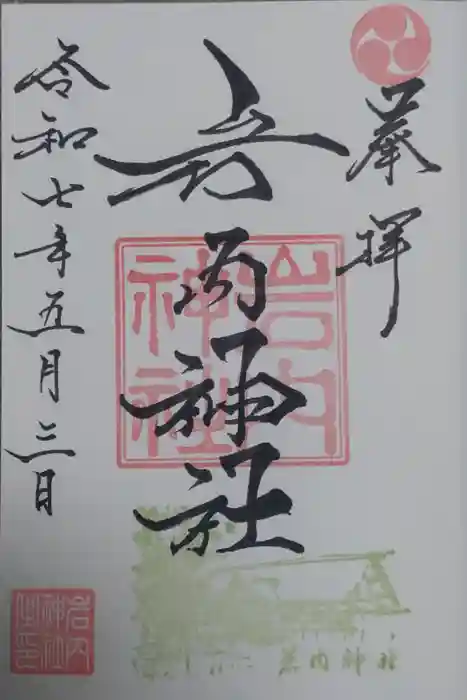 奉拝
岩内神社
令和七年五月三日
岩内神社
岩内神社